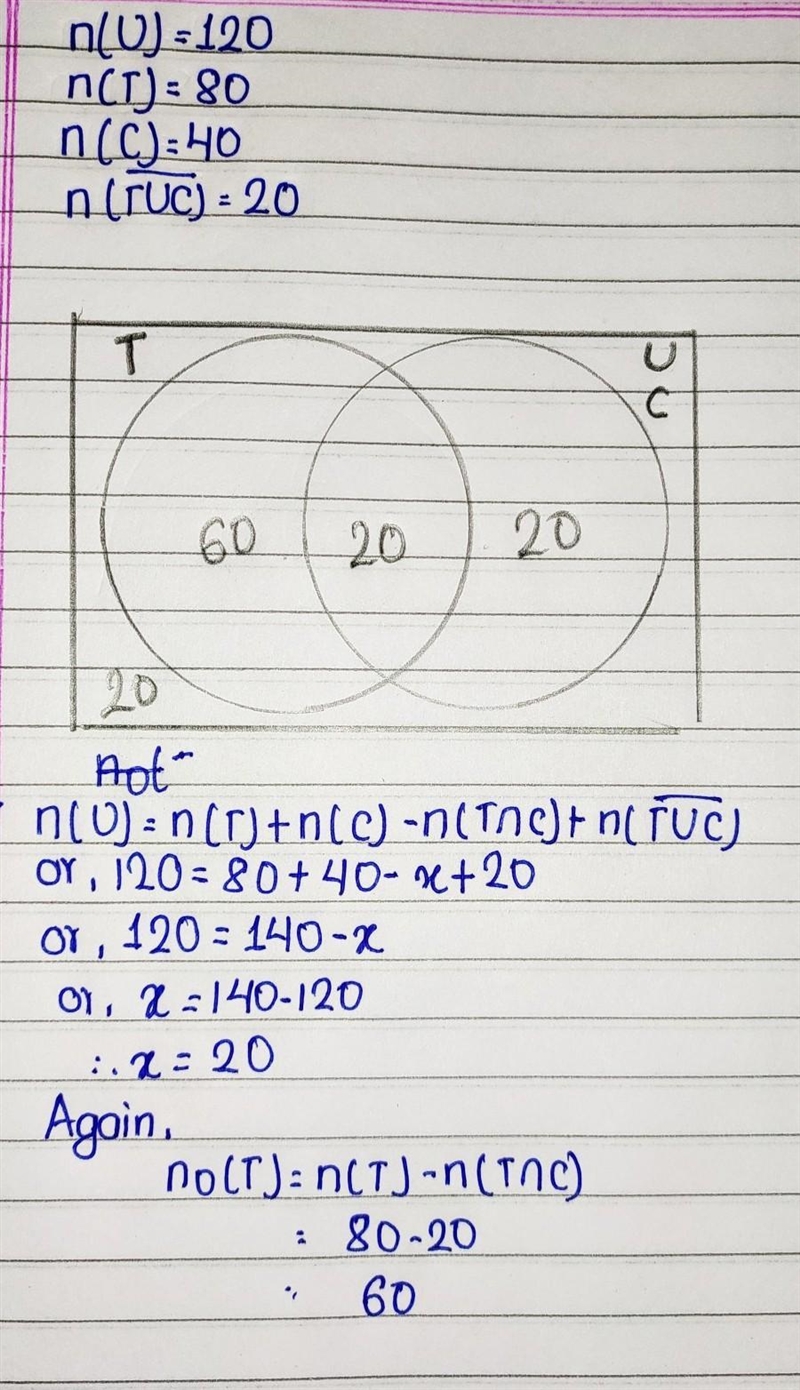 n(U) = 120
n(T) = 80
n(C) = 40
n(T̅U̅C̅) = 20
T
U
C
60
20
20
20
n(U) = n(T) + n(C) - n(T∩C) + n(T̅U̅C̅)
or, 120 = 80 + 40 - x + 20
or, 120 = 140 - x
or, x = 140 - 120
∴ x = 20
Again,
no(T) = n(T) - n(T∩C)
= 80 - 20
= 60